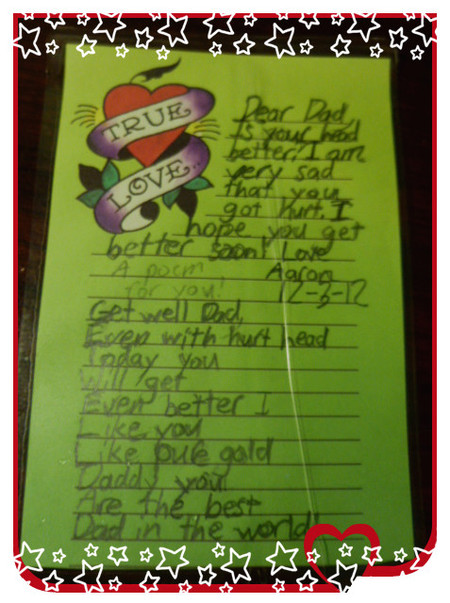 TRUE
LOVE...
Dear Dad,
Is your head
better? I am
very sad
that you
got hurt. I
hope you get
better soon! Love
A poem Aaron
for you! 12-3-12
Get well Dad,
Even with hurt head
Today you
Will get
Even better I
Like you
Like pure gold
Daddy you
Are the best
Dad in the world!